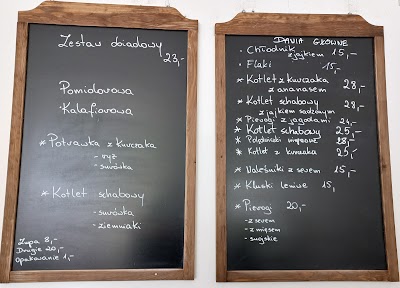 Zestaw obiadowy
23,-
Pomidorowa
Kalafiorowa
* Potrawka z kurczaka
- ryż
- surówka
* Kotlet schabowy
- surówka
- ziemniaki
Zupa 8,-
Drugie 20,-
Opakowanie 1,-
DANIA GŁÓWNE
• Chłodnik z jajkiem 15,-
• Flaki 15,-
* Kotlet z kurczaka
z ananasem 28,-
* Kotlet schabowy
z jajkiem sadzonym 28,-
* Pierogi z jagodami 24,-
* Kotlet schabowy 25,-
* 28,-
* Kotlet z kurczaka 25,-
* Naleśniki z serem 15,-
* Kluski leniwe 15,
* Pierogi 20,-
- z serem
- z mięsem
- ruskie